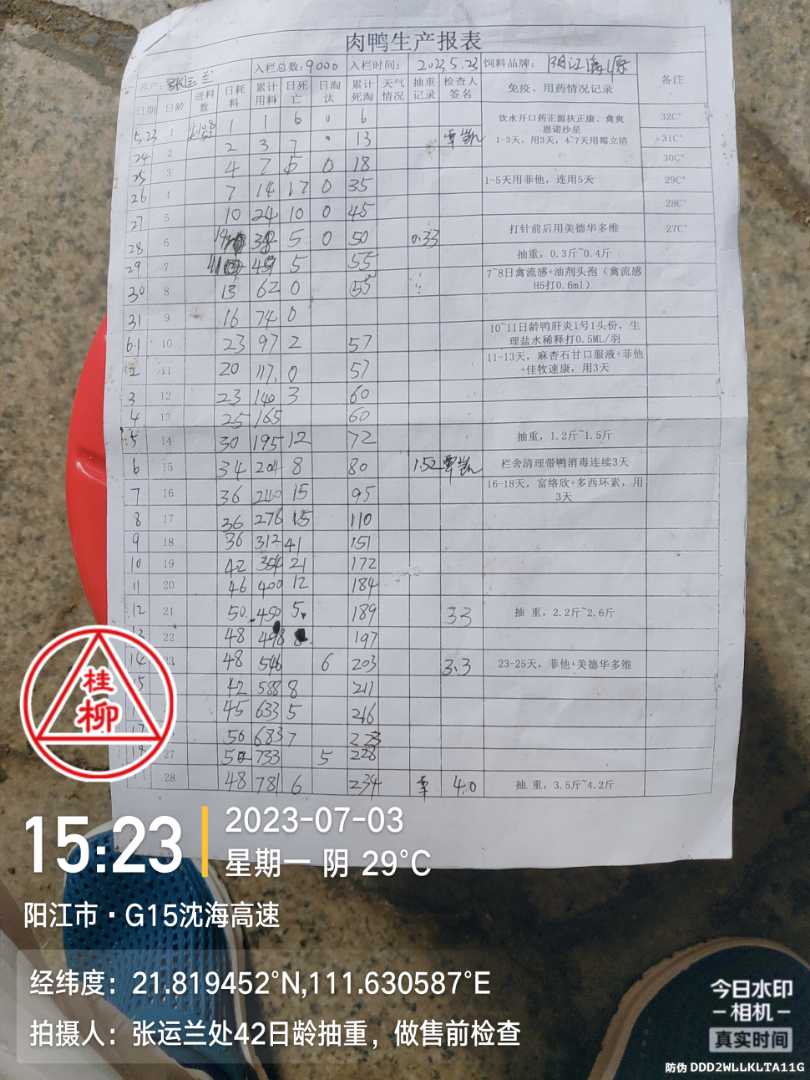 肉鸭生产报表
户: 张运兰 入栏总数: 9000 入栏时间: 2023.5.23 饲料品牌: 阳江海源
日期 日龄 进料数 日耗料 累计用料 日死亡 日淘汰 累计死淘 天气情况 抽重记录 检查人签名 免疫、用药情况记录 备注
5.23 1 1 1 6 0 6 饮水开口药正源扶正康、禽爽恩诺沙星 32C°
24 2 2 3 7 13 1-3天，用3天，4~7天用霉立清 31C°
25 3 4 7 5 0 18 30C°
26 4 7 14 17 0 35 1-5天用菲他，连用5天 29C°
27 5 10 24 10 0 45 28C°
28 6 5 0 50 0.33 打针前后用美德华多维 27C°
29 7 5 55 抽重，0.3斤~0.4斤
30 8 13 62 0 55 7~8日禽流感+油剂头孢（禽流感H5打0.6ml）
31 9 16 74 0
6.1 10 23 97 2 57 10~11日龄鸭肝炎1号1头份，生理盐水稀释打0.5ML/羽
2 11 20 117 0 57 11-13天，麻杏石甘口服液+菲他+佳牧速康，用3天
3 12 23 140 3 60
4 13 25 165 60
5 14 30 195 12 72 抽重，1.2斤~1.5斤
6 15 34 204 8 80 1.52 栏舍清理带鸭消毒连续3天
7 16 36 240 15 95 16-18天，富络欣+多西环素，用3天
8 17 36 276 15 110
9 18 36 312 41 151
10 19 42 354 21 172
11 20 46 400 12 184
12 21 50 450 5 189 33 抽重，2.2斤~2.6斤
13 22 48 498 8 197
14 23 48 546 6 203 3.3 23-25天，菲他+美德华多维
15 42 588 8 211
45 633 5 216
17 50 683 7 223
27 50 733 5 228
28 48 781 6 234 4.0 抽重，3.5斤~4.2斤
桂柳
15:23 2023-07-03
星期一 阴 29°C
阳江市·G15沈海高速
经纬度: 21.819452°N,111.630587°E
拍摄人: 张运兰处42日龄抽重，做售前检查
今日水印
相机
真实时间
防伪 DDD2WLLKLTA11G